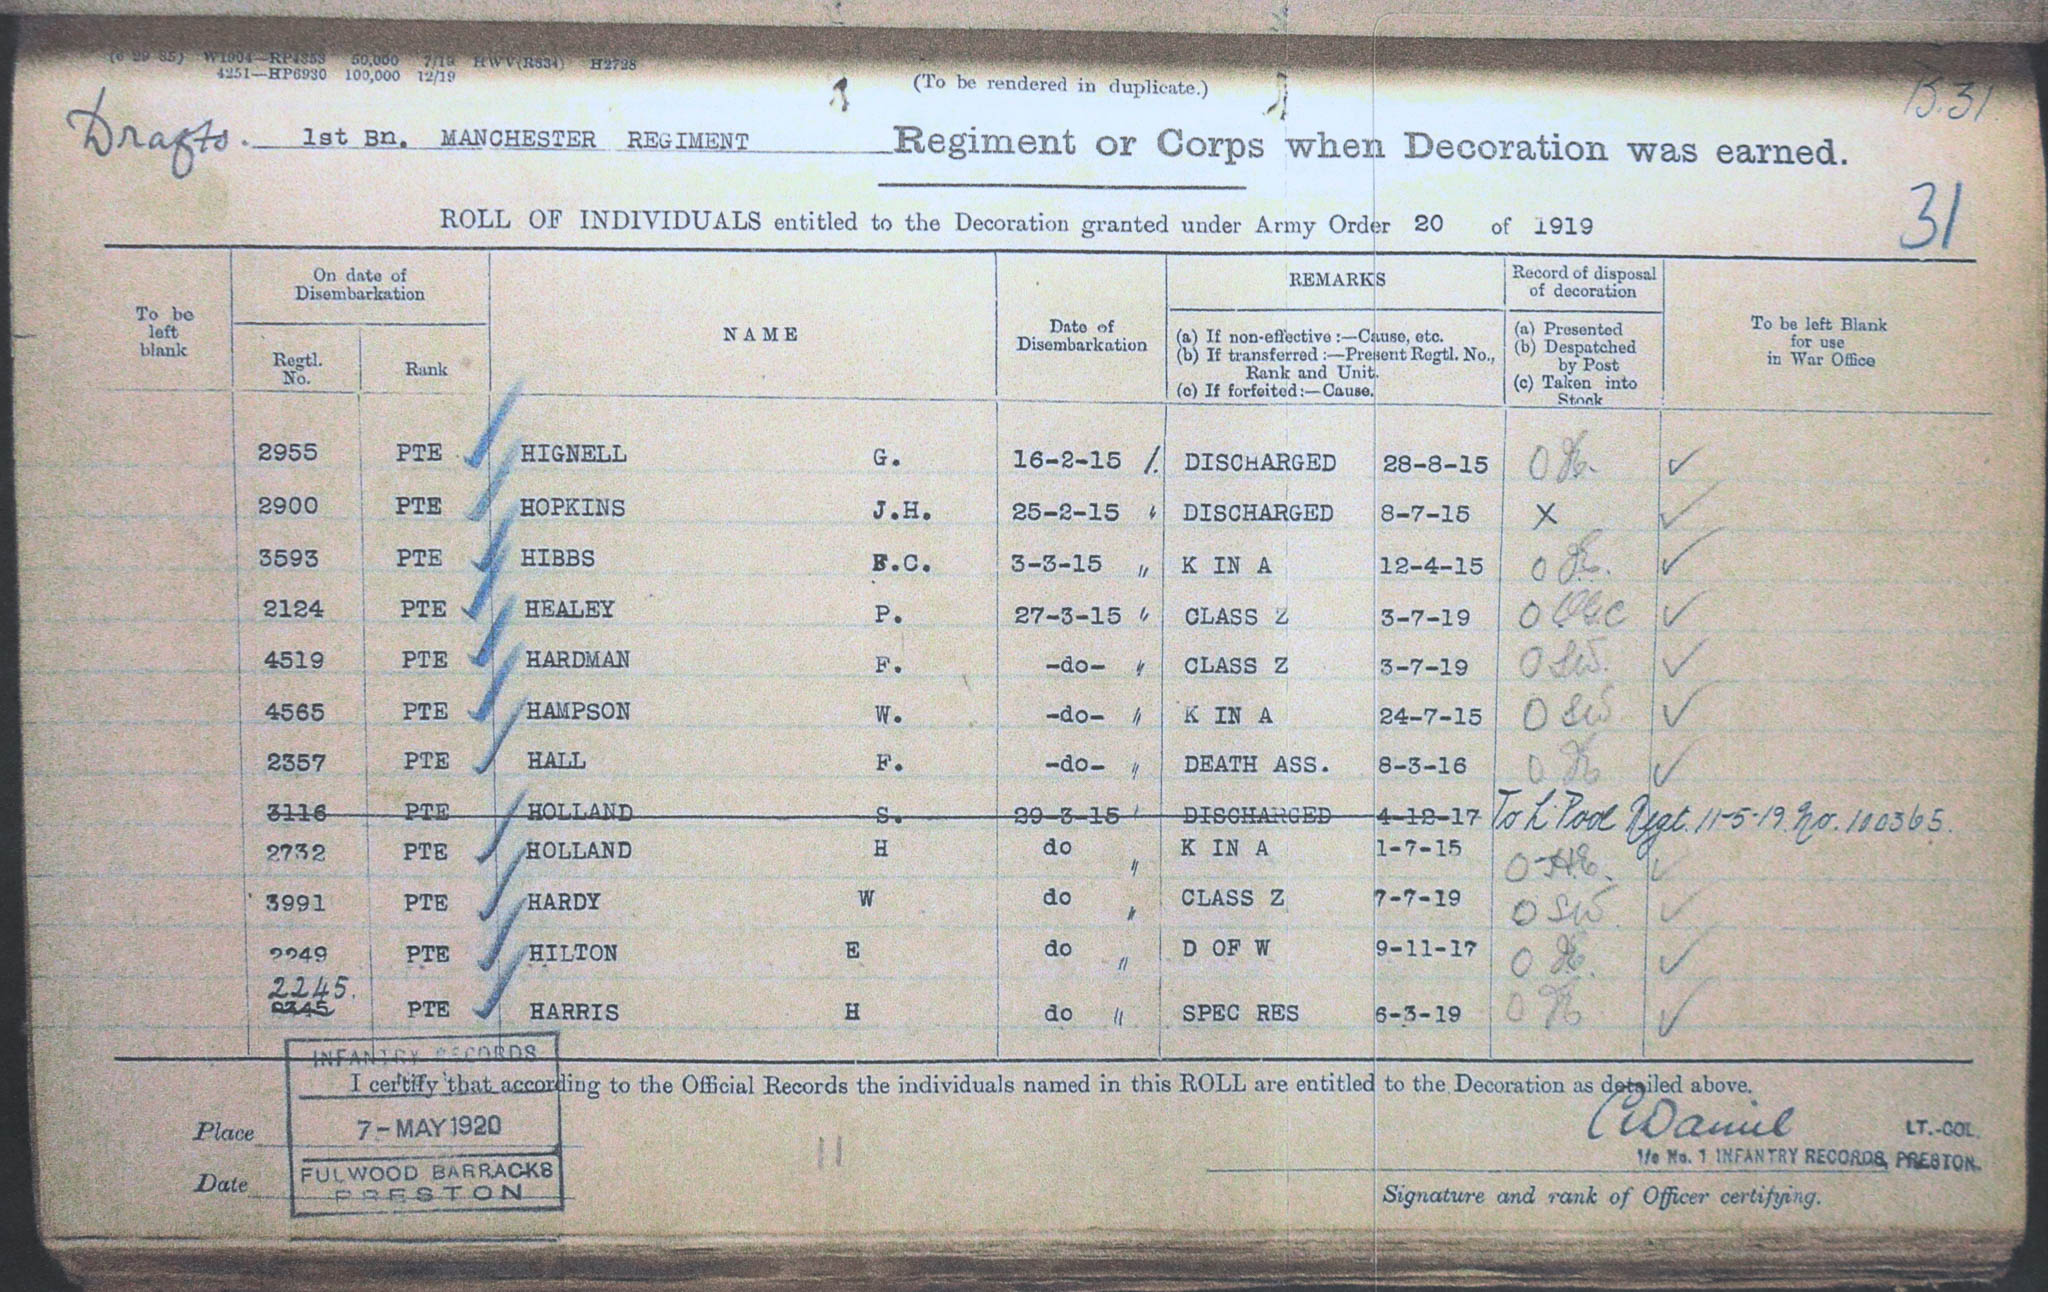 (6 29 85) W1904—RP4353 50,000 7/19 HWV(R834) H2728
4251—HP6930 100,000 12/19
(To be rendered in duplicate.)
B.31
Drafts. 1st Bn. MANCHESTER REGIMENT Regiment or Corps when Decoration was earned.
31
ROLL OF INDIVIDUALS entitled to the Decoration granted under Army Order 20 of 1919
To be left blank
On date of Disembarkation
Regtl. No.
Rank
NAME
Date of Disembarkation
REMARKS
(a) If non-effective:—Cause, etc.
(b) If transferred:—Present Regtl. No., Rank and Unit.
(c) If forfeited:—Cause.
Record of disposal of decoration
(a) Presented
(b) Despatched by Post
(c) Taken into Stock
To be left Blank for use in War Office
2955 PTE HIGNELL G. 16-2-15 DISCHARGED 28-8-15
2900 PTE HOPKINS J.H. 25-2-15 " DISCHARGED 8-7-15 X
3593 PTE HIBBS F.C. 3-3-15 " K IN A 12-4-15
2124 PTE HEALEY P. 27-3-15 " CLASS Z 3-7-19
4519 PTE HARDMAN F. -do- " CLASS Z 3-7-19 O SW.
4565 PTE HAMPSON W. -do- " K IN A 24-7-15 O SW
2357 PTE HALL F. -do- " DEATH ASS. 8-3-16
3116 PTE HOLLAND S. 29-3-15 " DISCHARGED 4-12-17 To L'Pool Regt. 11-5-19. No. 100365.
2732 PTE HOLLAND H do " K IN A 1-7-15
3991 PTE HARDY W do " CLASS Z 7-7-19 O SW
2249 PTE HILTON E do " D OF W 9-11-17
2245.
2345 PTE HARRIS H do " SPEC RES 6-3-19
INFANTRY RECORDS
I certify that according to the Official Records the individuals named in this ROLL are entitled to the Decoration as detailed above.
Place
7-MAY 1920
Date
FULWOOD BARRACKS
PRESTON
11
LT.-COL.
I/c No. 1 INFANTRY RECORDS, PRESTON.
Signature and rank of Officer certifying.